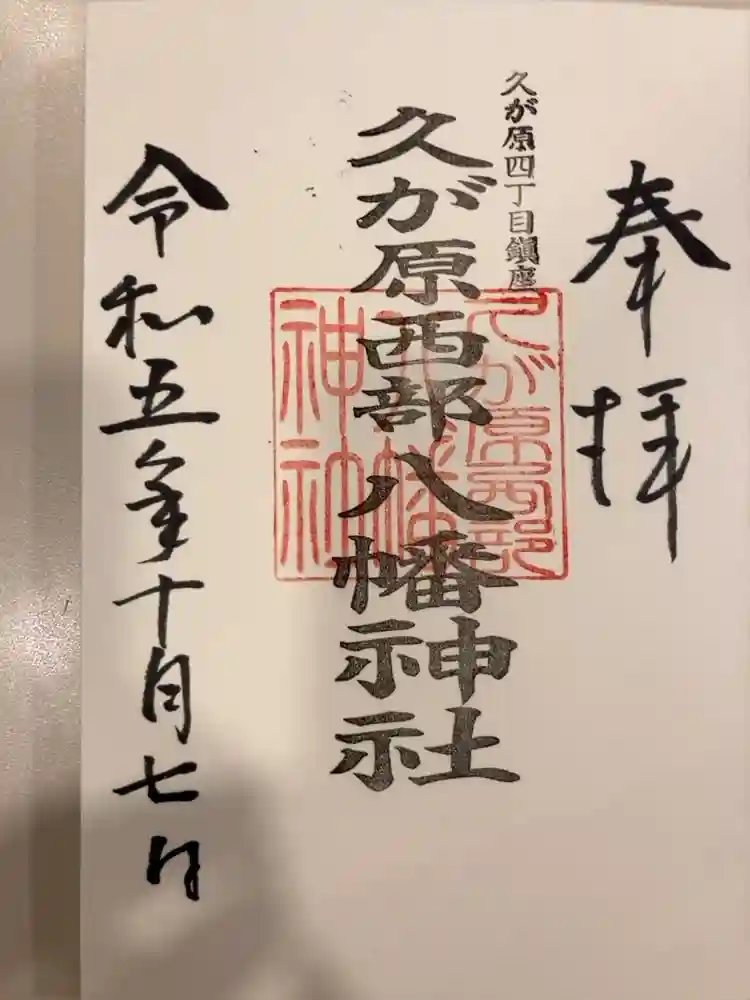 奉拝
久が原四丁目鎮座
久が原西部八幡神社
久が原西部
八幡
神社
令和五年十月七日